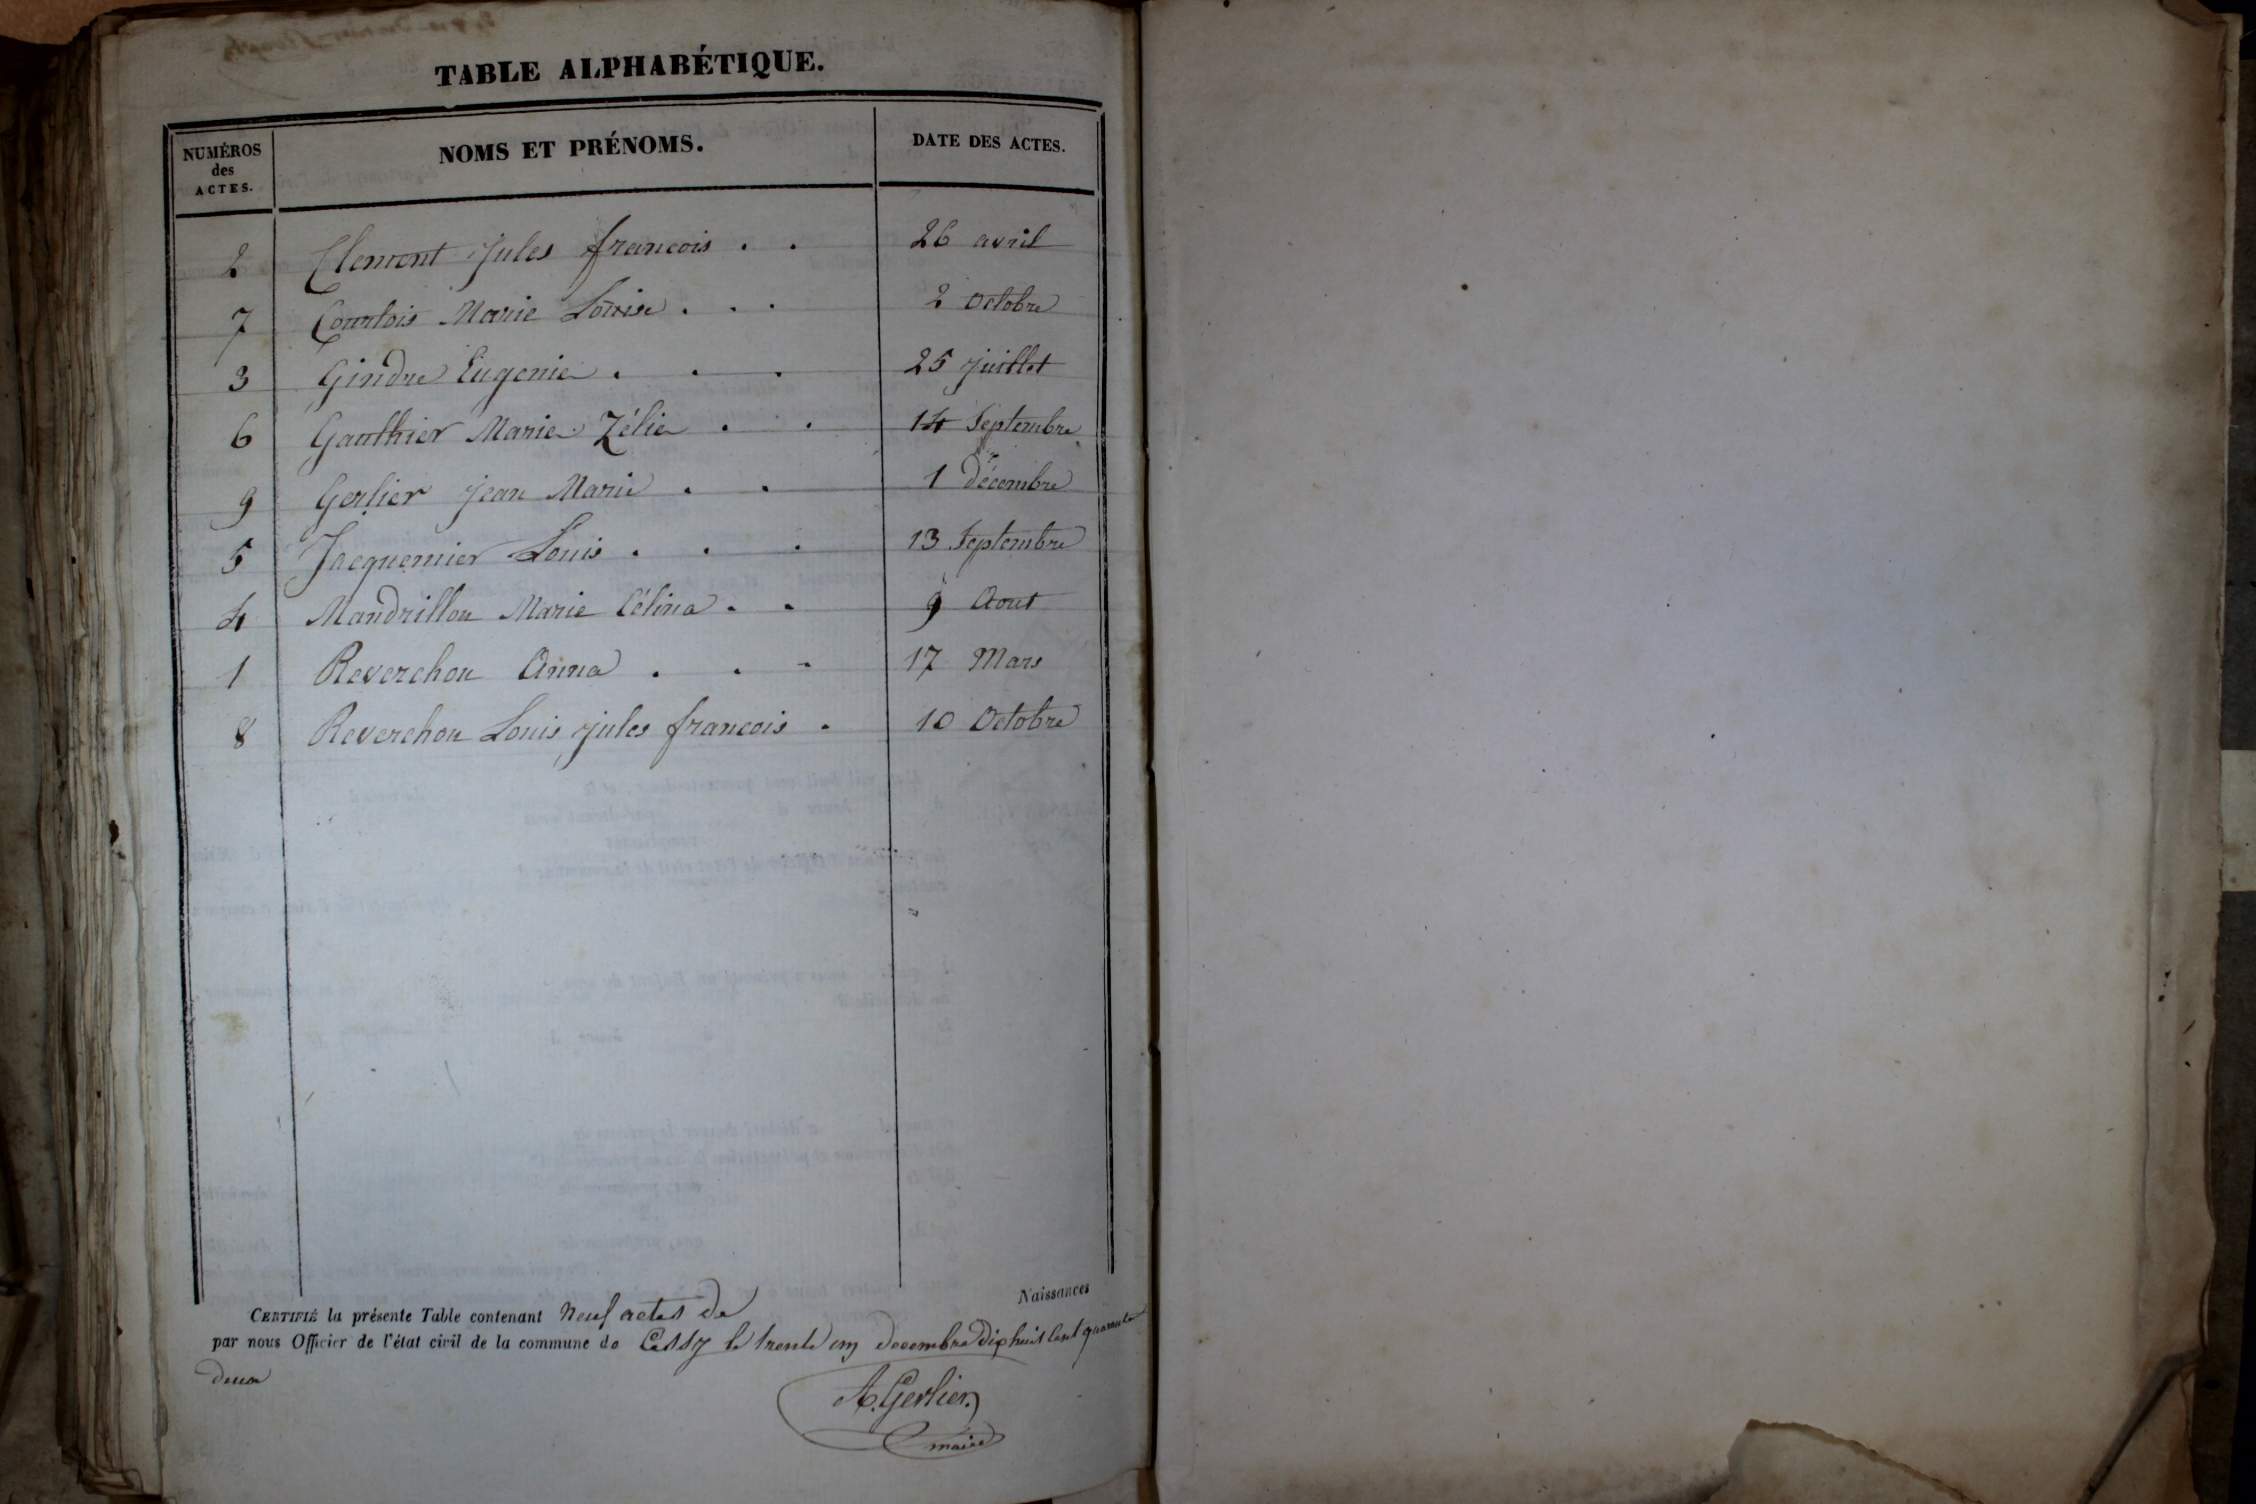 TABLE ALPHABÉTIQUE.
NUMÉROS des ACTES. NOMS ET PRÉNOMS. DATE DES ACTES.
2 Clement Jules francois . . 26 avril
7 Courtois Marie Louise . . . 2 Octobre
3 Gindre Eugenie . . . 25 juillet
6 Gauthier Marie Zélie . . 14 Septembre
9 Gerlier jean Marie . . 1 décembre
5 Jacquemier Louis . . . 13 Septembre
4 Mandrillon Marie Célina . . 9 Aout
1 Reverchon Anna . . - 17 Mars
8 Reverchon Louis jules francois . 10 Octobre
CERTIFIÉ la présente Table contenant Neuf actes de Naissances
par nous Officier de l'état civil de la commune de Cessy le trente un decembre dix huit cent quarante
deux
A. Gerlier
maire